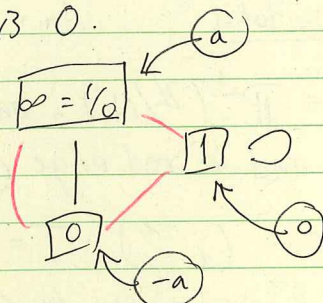 0.
a
∞ = 1/0
1
0
0
-a